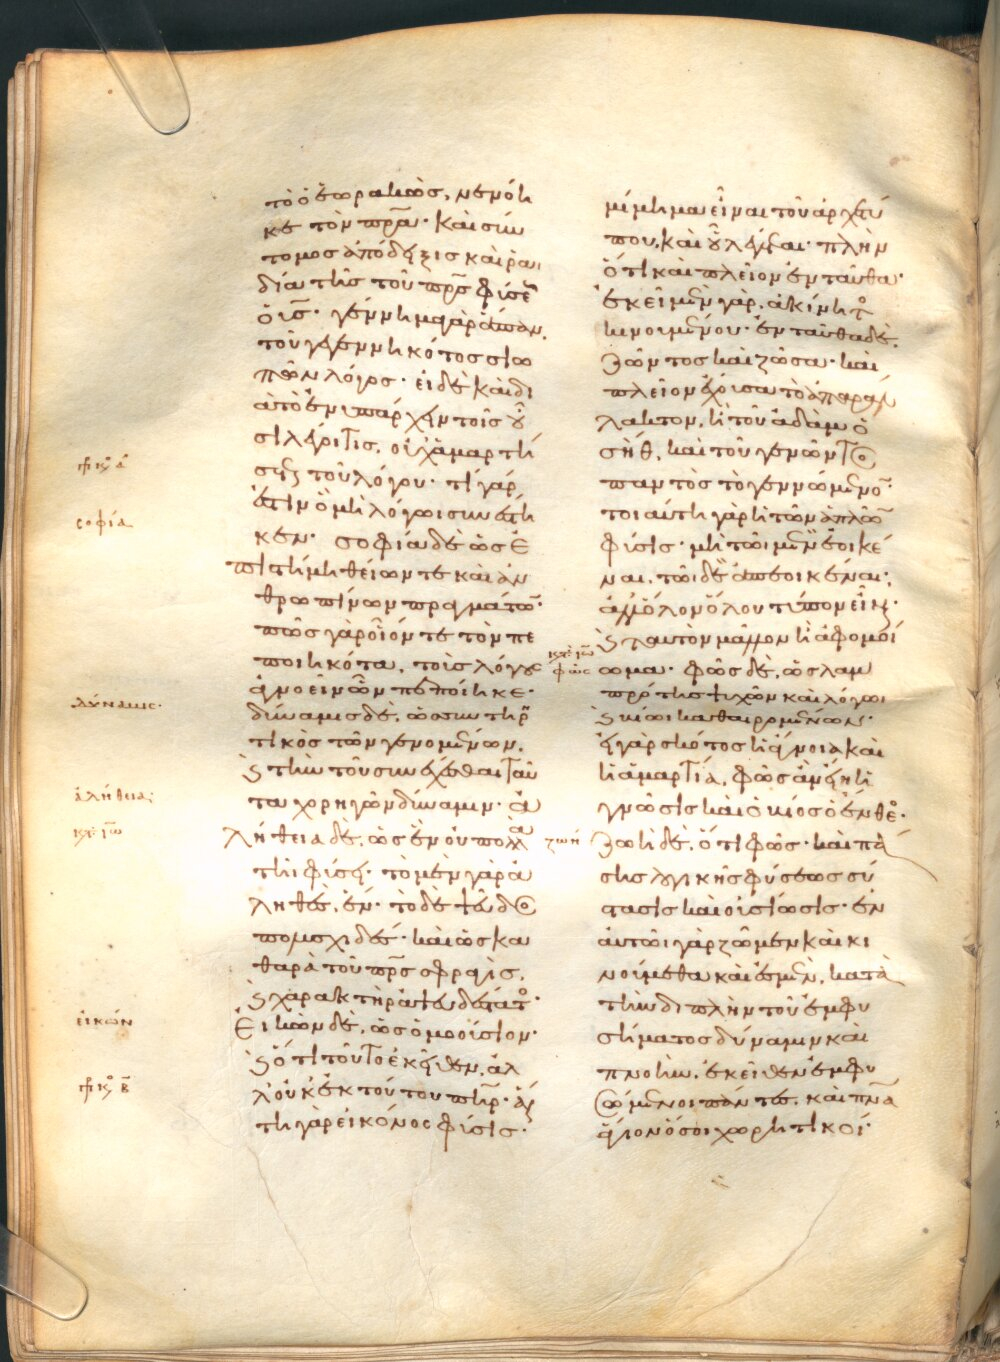 τὸ ὁ ἑωρακὼς, νενόη
κε τὸν πρ̅α· καὶ σύν
τομος ἀπόδειξις καὶ ῥα
δία τῆς τοῦ πρ̅ς φύσε
ὁ υἱς̅· γέννημα γὰρ ἅπαν
τοῦ γεγεννηκότος σιω
πῶν λόγος· εἰ δὲ καὶ δι
ὰ τὸ ἐνυπάρχειν τοῖς οὖ
σι λέγοι τις, οὐχ ἁμαρτή
σει τοῦ λόγου· τί γάρ
ἐστιν ὃ μὴ λόγωι συνέστη
κεν· σοφία δὲ ὡς ἐ
πιστήμη θείων τε καὶ ἀν
θρωπίνων πραγμάτω̅·
πῶς γὰρ οἷόν τε τὸν πε
ποιηκότα, τοὺς λόγους
ἀγνοεῖν ὧν πεποίηκε·
δύναμις δὲ, ὡς συντηρη
τικὸς τῶν γενομένων,
ϗ τὴν τοῦ συνέχεσθαι ταῦ
τα χορηγῶν δύναμιν· ἀ
λήθεια δὲ, ὡς ἓν οὐ πολλὰ
τῆι φύσει· τὸ μὲν γὰρ ἀ
ληθὲς, ἕν· τὸ δὲ ψεῦδος
πολυσχιδές· καὶ ὡς κα
θαρὰ τοῦ πρ̅ς σφραγὶς,
ϗ χαρακτὴρ ἀψευδέστατο·
Εἰκὼν δὲ, ὡς ὁμοούσιον·
ϗ ὅτι τοῦτο ἐκεῖθεν, ἀλ
λ' οὐκ ἐκ τούτου πη̅ρ· αὕ
τη γὰρ εἰκόνος φύσις·
σοφία
δύναμις·
ἀλήθεια·
εἰκών
μίμημα εἶναι τοῦ ἀρχετύ
που, καὶ οὗ λέγεται· πλὴν
ὅτι καὶ πλεῖον ἐνταῦθα·
ἐκεῖ μὲν γὰρ, ἀκίνητο
κινουμένου· ἐνταῦθα δὲ,
ζῶντος καὶ ζῶσα· καὶ
πλεῖον ἔχουσα τὸ ἀπαράλ
λακτον, ἢ τοῦ ἀδὰμ ὁ
σὴθ, καὶ τοῦ γεννῶντος
παντὸς τὸ γεννώμενο̅·
τοιαύτη γὰρ ἡ τῶν ἁπλῶ̅
φύσις· μὴ τῶι μὲν ἐοικέ
ναι, τῶι δὲ ἀπεοικέναι·
ἀλλ' ὅλον ὅλου τύπον εἶναι·
ϗ ταυτὸν μᾶλλον ἢ ἀφομοί
ωμα· φῶς δὲ, ὡς λαμ
πρότης ψυχῶν καὶ λόγωι
ϗ βίωι καθαιρομένων·
εἰ γὰρ σκότος ἡ ἄγνοια καὶ
ἡ ἁμαρτία, φῶς ἂν εἴη ἡ
γνῶσις καὶ ὁ βίος ὁ ἔνθεο·
ζωὴ δὲ, ὅτι φῶς· καὶ πά
σης λογικῆς φύσεως σύ
στασις καὶ οὐσίωσις· ἐν
αὐτῶι γὰρ ζῶμεν καὶ κι
νούμεθα καὶ ἐσμὲν, κατὰ
τὴν διπλὴν τοῦ ἐμφυ
σήματος δύναμιν καὶ
πνοὴν, ἐκεῖθεν ἐμφυ
σώμενοι πάντες, καὶ πν̅α
ἅγιον ὅσοι χωρητικοί·
φῶς
ζωή